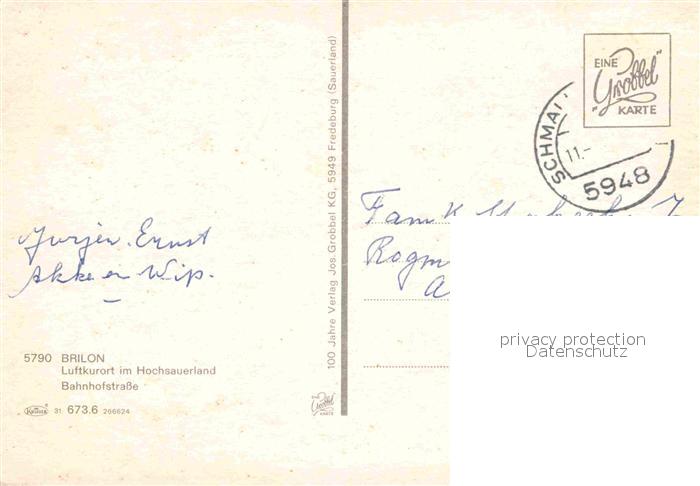 Jurjen. Ernst
Akke en Wip.
5790 BRILON
Luftkurort im Hochsauerland
Bahnhofstraße
Krüger 31 673.6 266624
100 Jahre Verlag Jos. Grobbel KG, 5949 Fredeburg (Sauerland)
EINE
"Grobbel"
KARTE
EINE
Grobbel
KARTE
SCHMAL
11.-
5948
Fam K
Rogm
A
privacy protection
Datenschutz